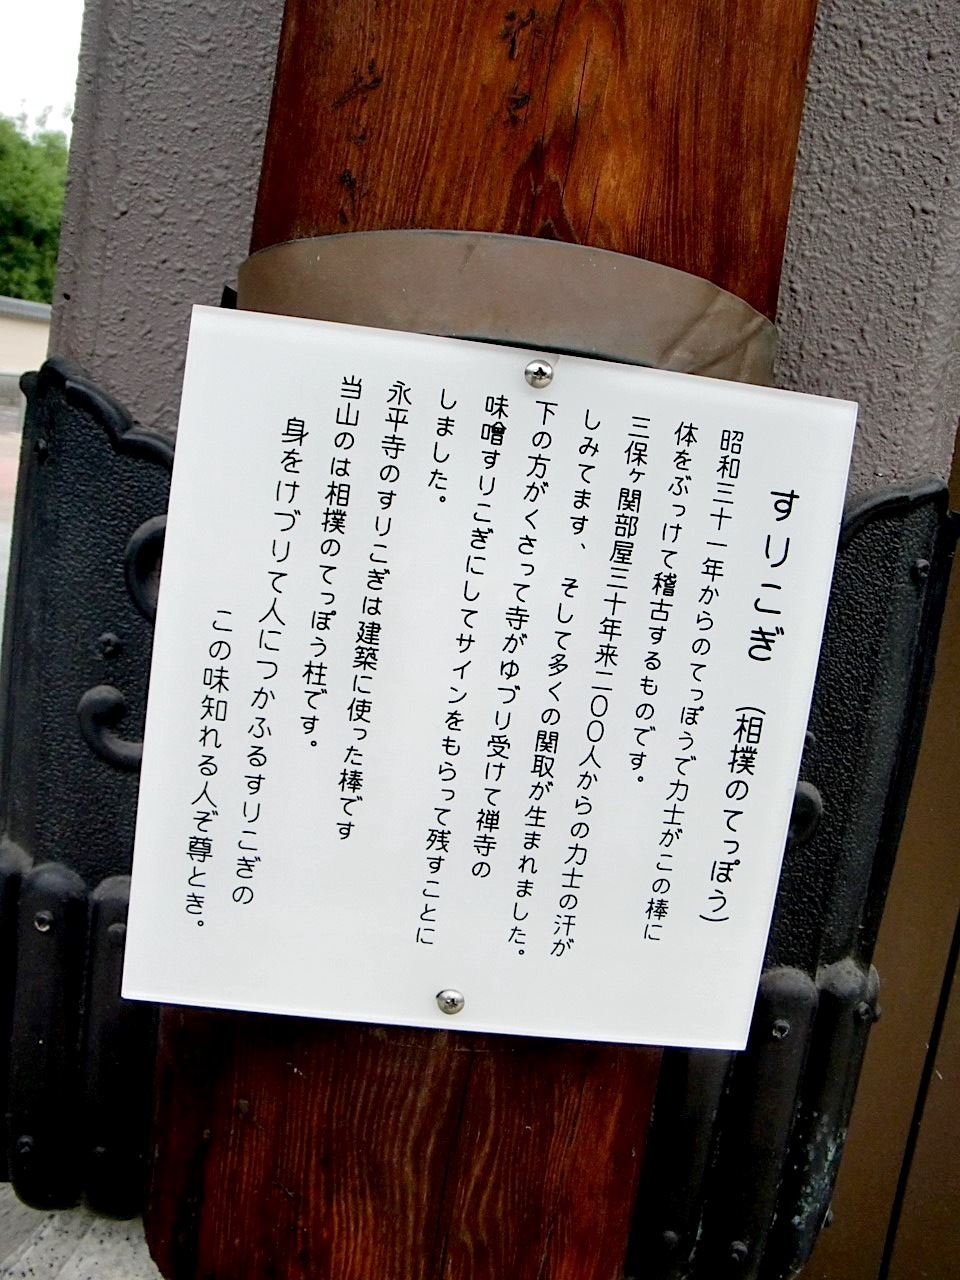 すりこぎ （相撲のてっぽう）
昭和三十一年からのてっぽうで力士がこの棒に
体をぶっけて稽古するものです。
三保ヶ関部屋三十年来二〇〇人からの力士の汗が
しみてます、そして多くの関取が生まれました。
下の方がくさって寺がゆづり受けて禅寺の
味噌すりこぎにしてサインをもらって残すことに
しました。
永平寺のすりこぎは建築に使った棒です
当山のは相撲のてっぽう柱です。
身をけづりて人につかふるすりこぎの
この味知れる人ぞ尊とき。